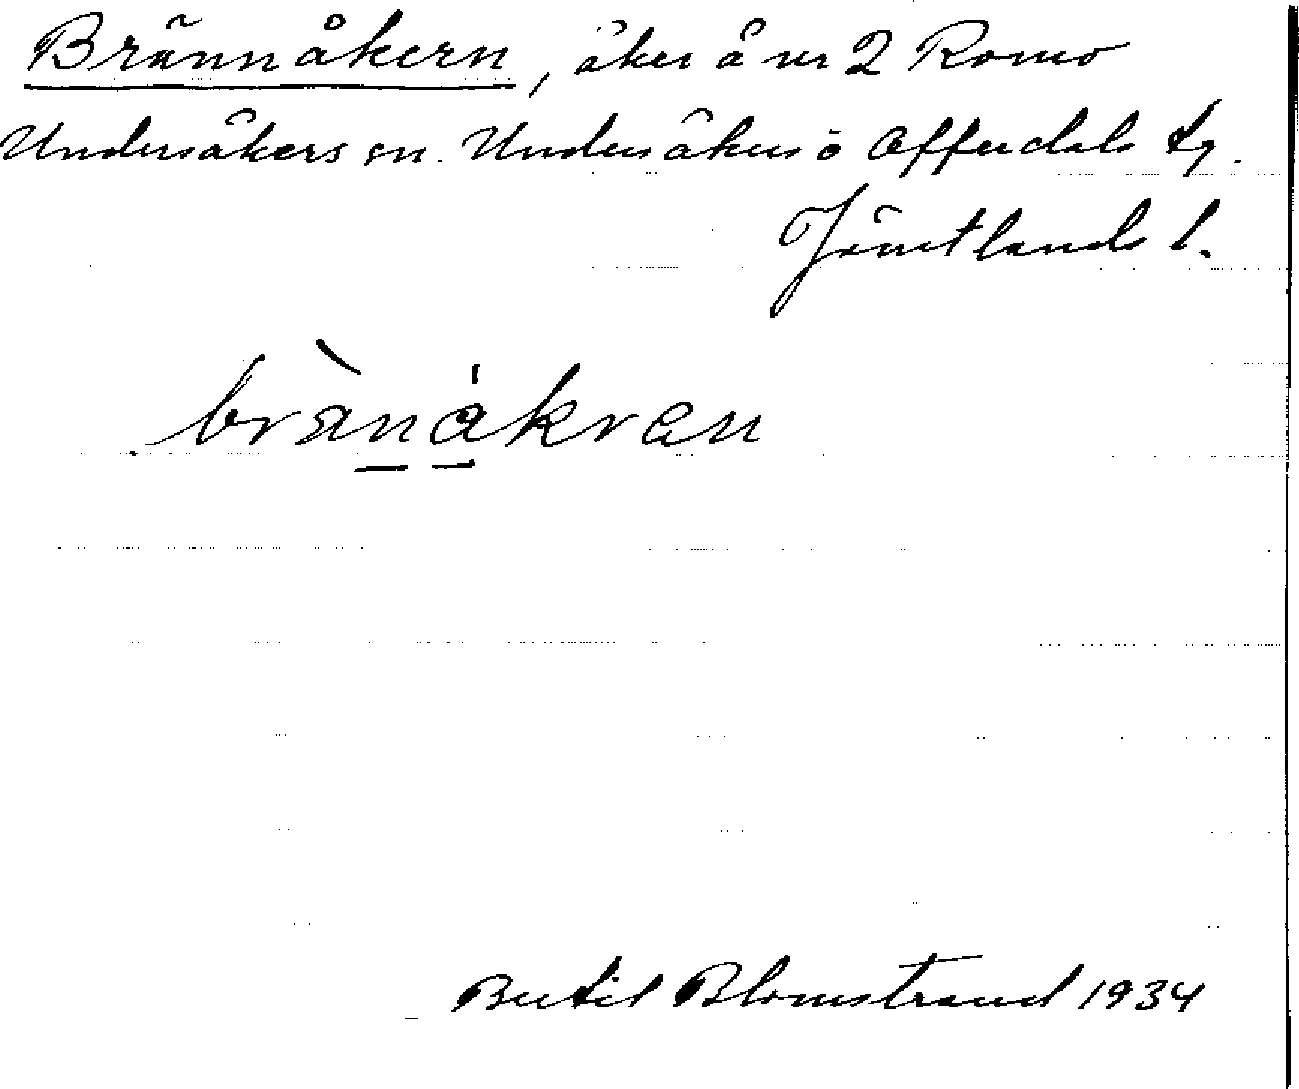 Brännåkern, åker å nr 2 Romo
Undersåkers sn. Undersåkers o Offerdals tg.
Jämtlands l.
brànákran
Bertil Blomstrand 1934